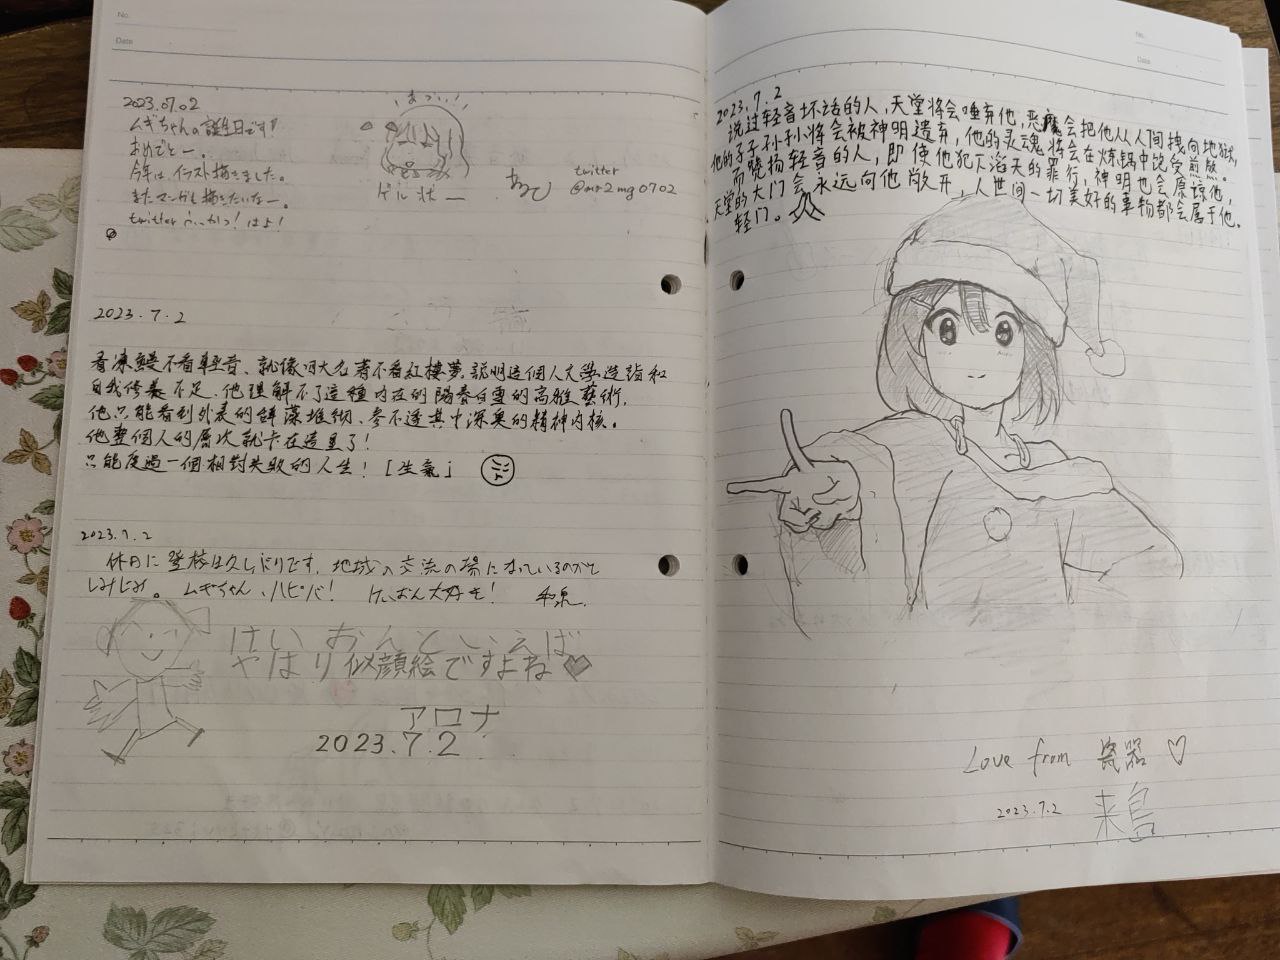 No.
Date
2023.07.02
ムギちゃんの誕生日です!
おめでとー。
今年はイラスト描きました。
またマンガも描きたいなー。
twitter ふっかつ!はよ!
あつい!!
ゲル状ー
twitter
@mr2mg0702
2023.7.2
看凍鰻不看輕音、就像四大名著不看紅樓夢。說明這個人文學造詣和
自我修養不足、他理解不了這種內在的陽春白雪的高雅藝術、
他只能看到外表的辭藻堆砌、參不透其中深奧的精神內核。
他整個人的層次就卡在這里了!
只能度過一個相對失敗的人生!「生氣」
2023.7.2
休日に登校は久しぶりです。地域の交流の場になっているのがて
しみじみ。ムギちゃん、ハピバ! けいおん大好き!
けいおんといえば
やはり似顔絵ですよね♥
アロナ
2023.7.2
No.
Date
2023.7.2
说过轻音坏话的人,天堂将会唾弃他,恶魔会把他从人间拽向地狱,
他的子子孙孙将会被神明遗弃,他的灵魂将会在炼锅中饱受煎熬。
而赞扬轻音的人,即使他犯下滔天的罪行,神明也会原谅他,
天堂的大门会永远向他敞开,人世间一切美好的事物都会属于他。
轻门。
Love from 瓷器 ♡
2023.7.2 来島